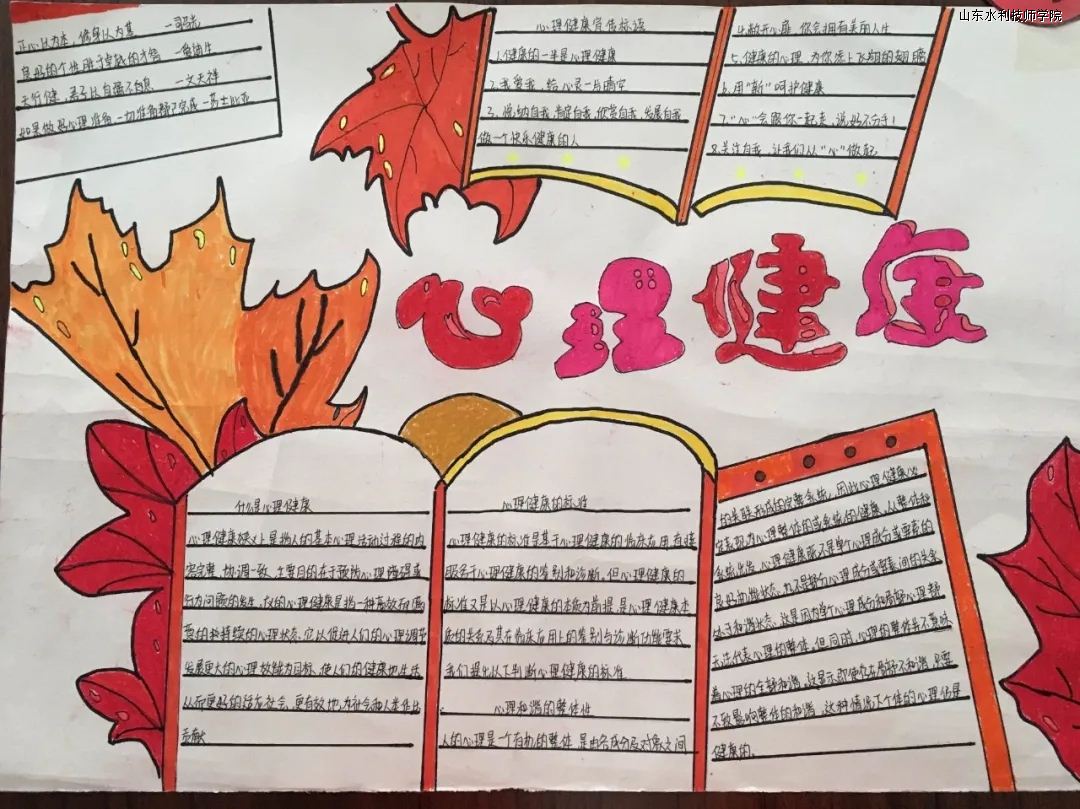 山东水利技师学院
正心以为本，修身以为基 —司马光
良好的个性胜于卓越的才智 —爱迪生
天行健，君子以自强不息 —文天祥
如果做好心理准备，一切准备都已完成 —莎士比亚
心理健康宣传标语
1.健康的一半是心理健康
2.我爱我，给心灵一片晴空
3.悦纳自我，肯定自我，欣赏自我，发展自我
做一个快乐健康的人
4.敞开心扉，你会拥有美丽人生
5.健康的心理，为你添上飞翔的翅膀
6.用“新”呵护健康
7.“心”会跟你一起走，说好不分手！
8.关注自我，让我们从“心”做起
心理健康
什么是心理健康
心理健康狭义上是指人的基本心理活动过程的内
容完整，协调一致，主要目的在于预防心理障碍或
行为问题的发生，广义的心理健康是指一种高效而满
意的和持续的心理状态，它以促进人们的心理调节
发展更大的心理效能为目标，使人们的健康地生活
从而更好的适应社会，更有效地，为社会和人类作出
贡献
心理健康的标准
心理健康的标准是基于心理健康的临床应用直接
服务于心理健康的鉴别和诊断，但心理健康的
标准又是以心理健康的本质为前提，是心理健康本
质的关系及其在临床应用上的鉴别与诊断功能要求
我们提出以下判断心理健康的标准
心理和谐的整体性
人的心理是一个有机的整体，是由各成分及对象之间
的关联形成的完整系统，因此心理健康必
定表现为心理整体的或系统的健康，从整体和
系统出发，心理健康既不是单个心理成分或要素的
良好功能状态，也不是部分心理成分或要素间的关系
处于和谐状态。这是因为单个心理成分和局部心理都
无法代表心理的整体，但同时，心理的整体并不意味
着心理的全部和谐，这显示即使存在局部不和谐，只要
不致影响整体的和谐，这种情境下个体的心理仍是
健康的。